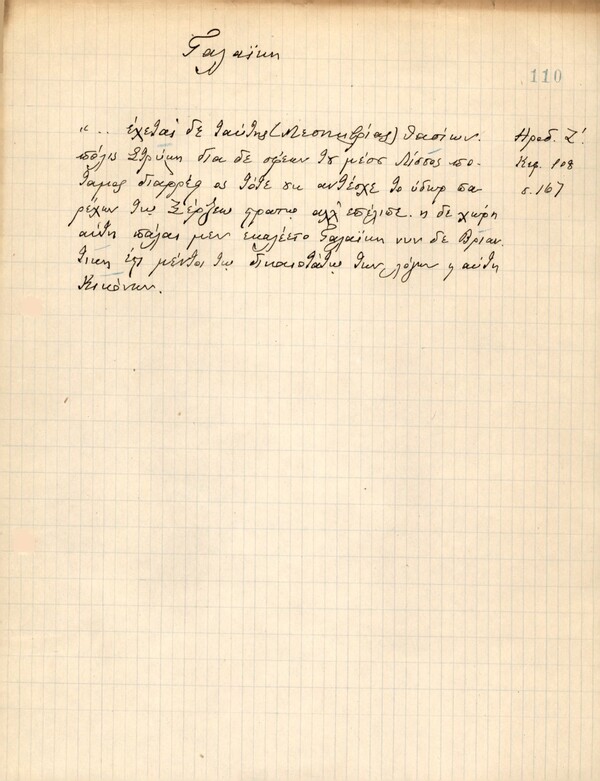 Γαλαϊκη
110
".. έχεται δε ταύτης (Μεσημβρίας) Θασίων
πόλις Στρύμη δια δε σφέων του μέσου Λίσσος πο-
ταμος διαρρέει ος τότε ουκ αντέσχε το ύδωρ πα-
ρέχων τω Ξέρξεω στρατω αλλ επέλιπε. η δε χώρη
αύτη πάλαι μεν εκαλέετο Γαλαϊκη νυν δε Βριαν-
τικη έστι μέντοι τω δικαιοτάτω των λόγων η αύτη
Κικόνων.
Ηροδ. Ζ'.
Κεφ. 108
σ. 167